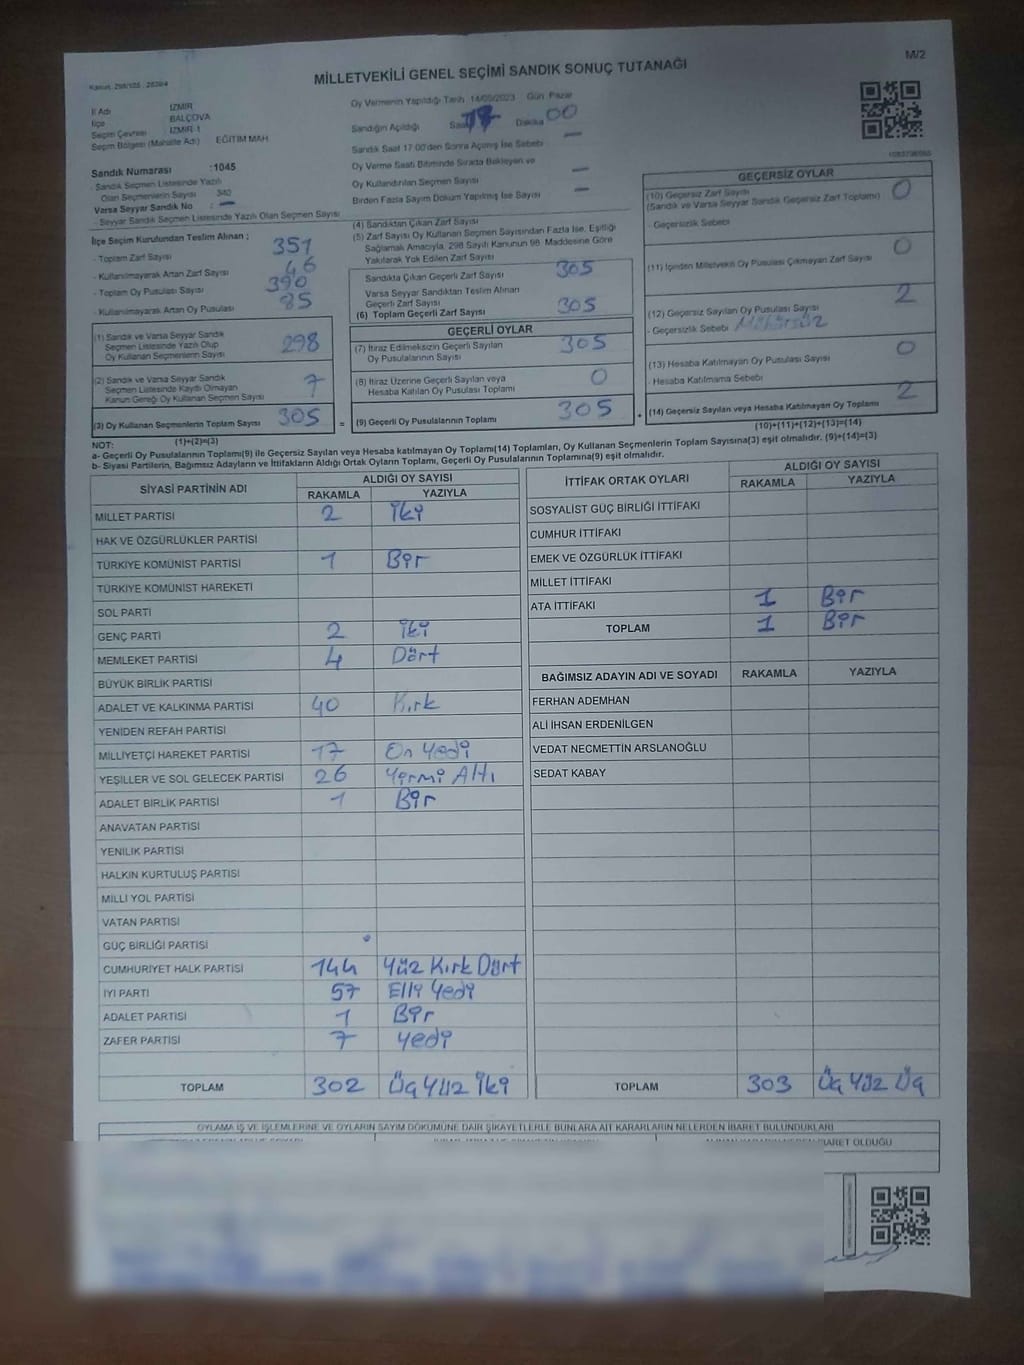 M/2
Kanun: 298/105 : 2839/4
MİLLETVEKİLİ GENEL SEÇİMİ SANDIK SONUÇ TUTANAĞI
İl Adı İZMİR
İlçe BALÇOVA
Seçim Çevresi İZMİR-1
Seçim Bölgesi (Mahalle Adı) EĞİTİM MAH
Sandık Numarası :1045
- Sandık Seçmen Listesinde Yazılı
Olan Seçmenlerin Sayısı 340
Varsa Seyyar Sandık No : -
- Seyyar Sandık Seçmen Listesinde Yazılı Olan Seçmen Sayısı
Oy Vermenin Yapıldığı Tarih 14/05/2023 Gün: Pazar
Sandığın Açıldığı Saat 17 Dakika 00
Sandık Saat 17:00'den Sonra Açılmış İse Sebebi -
Oy Verme Saati Bitiminde Sırada Bekleyen ve
Oy Kullandırılan Seçmen Sayısı -
Birden Fazla Sayım Döküm Yapılmış İse Sayısı -
İlçe Seçim Kurulundan Teslim Alınan ;
- Toplam Zarf Sayısı 351
- Kullanılmayarak Artan Zarf Sayısı 46
- Toplam Oy Pusulası Sayısı 390
- Kullanılmayarak Artan Oy Pusulası 85
(1) Sandık ve Varsa Seyyar Sandık
Seçmen Listesinde Yazılı Olup
Oy Kullanan Seçmenlerin Sayısı 298
(2) Sandık ve Varsa Seyyar Sandık
Seçmen Listesinde Kayıtlı Olmayan
Kanun Gereği Oy Kullanan Seçmen Sayısı 7
(3) Oy Kullanan Seçmenlerin Toplam Sayısı 305
(1)+(2)=(3)
(4) Sandıktan Çıkan Zarf Sayısı
(5) Zarf Sayısı Oy Kullanan Seçmen Sayısından Fazla İse, Eşitliği
Sağlamak Amacıyla, 298 Sayılı Kanunun 98. Maddesine Göre
Yakılarak Yok Edilen Zarf Sayısı
Sandıkta Çıkan Geçerli Zarf Sayısı 305
Varsa Seyyar Sandıktan Teslim Alınan
Geçerli Zarf Sayısı
(6) Toplam Geçerli Zarf Sayısı 305
GEÇERLİ OYLAR
(7) İtiraz Edilmeksizin Geçerli Sayılan
Oy Pusulalarının Sayısı 305
(8) İtiraz Üzerine Geçerli Sayılan veya
Hesaba Katılan Oy Pusulası Toplamı 0
= (9) Geçerli Oy Pusulalarının Toplamı 305 +
GEÇERSİZ OYLAR
(10) Geçersiz Zarf Sayısı 0
(Sandık ve Varsa Seyyar Sandık Geçersiz Zarf Toplamı)
- Geçersizlik Sebebi
(11) İçinden Milletvekili Oy Pusulası Çıkmayan Zarf Sayısı 0
(12) Geçersiz Sayılan Oy Pusulası Sayısı 2
- Geçersizlik Sebebi Mühürsüz
(13) Hesaba Katılmayan Oy Pusulası Sayısı 0
- Hesaba Katılmama Sebebi
(14) Geçersiz Sayılan veya Hesaba Katılmayan Oy Toplamı 2
(10)+(11)+(12)+(13)=(14)
NOT:
a- Geçerli Oy Pusulalarının Toplamı(9) ile Geçersiz Sayılan veya Hesaba katılmayan Oy Toplamı(14) Toplamları, Oy Kullanan Seçmenlerin Toplam Sayısına(3) eşit olmalıdır. (9)+(14)=(3)
b- Siyasi Partilerin, Bağımsız Adayların ve İttifakların Aldığı Ortak Oyların Toplamı, Geçerli Oy Pusulalarının Toplamına(9) eşit olmalıdır.
SİYASİ PARTİNİN ADI ALDIĞI OY SAYISI
RAKAMLA YAZIYLA
MİLLET PARTİSİ 2 İki
HAK VE ÖZGÜRLÜKLER PARTİSİ
TÜRKİYE KOMÜNİST PARTİSİ 1 Bir
TÜRKİYE KOMÜNİST HAREKETİ
SOL PARTİ
GENÇ PARTİ 2 İki
MEMLEKET PARTİSİ 4 Dört
BÜYÜK BİRLİK PARTİSİ
ADALET VE KALKINMA PARTİSİ 40 Kırk
YENİDEN REFAH PARTİSİ
MİLLİYETÇİ HAREKET PARTİSİ 17 On Yedi
YEŞİLLER VE SOL GELECEK PARTİSİ 26 Yirmi Altı
ADALET BİRLİK PARTİSİ 1 Bir
ANAVATAN PARTİSİ
YENİLİK PARTİSİ
HALKIN KURTULUŞ PARTİSİ
MİLLİ YOL PARTİSİ
VATAN PARTİSİ
GÜÇ BİRLİĞİ PARTİSİ
CUMHURİYET HALK PARTİSİ 144 Yüz Kırk Dört
İYİ PARTİ 57 Elli Yedi
ADALET PARTİSİ 1 Bir
ZAFER PARTİSİ 7 Yedi
TOPLAM 302 Üç Yüz İki
İTTİFAK ORTAK OYLARI ALDIĞI OY SAYISI
RAKAMLA YAZIYLA
SOSYALİST GÜÇ BİRLİĞİ İTTİFAKI
CUMHUR İTTİFAKI
EMEK VE ÖZGÜRLÜK İTTİFAKI
MİLLET İTTİFAKI
ATA İTTİFAKI 1 Bir
TOPLAM 1 Bir
BAĞIMSIZ ADAYIN ADI VE SOYADI RAKAMLA YAZIYLA
FERHAN ADEMHAN
ALİ İHSAN ERDENİLGEN
VEDAT NECMETTİN ARSLANOĞLU
SEDAT KABAY
TOPLAM 303 Üç Yüz Üç
OYLAMA İŞ VE İŞLEMLERİNE VE OYLARIN SAYIM DÖKÜMÜNE DAİR ŞİKAYETLERLE BUNLARA AİT KARARLARIN NELERDEN İBARET BULUNDUKLARI
İBARET OLDUĞU